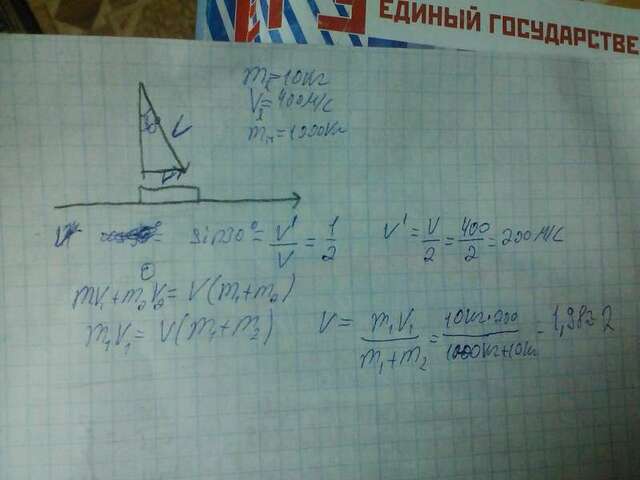 ЕДИНЫЙ ГОСУДАРСТВЕ
m₁=10кг
V₁=400м/с
mп=1000кг
30°
V
V'
sin30°=V'/V=1/2 V'=V/2=400/2=200м/с
0
m₁V₁+m₂V₂=V(m₁+m₂)
m₁V₁=V(m₁+m₂) V=m₁V₁/m₁+m₂=10кг·200/1000кг+10кг=1,98≈2